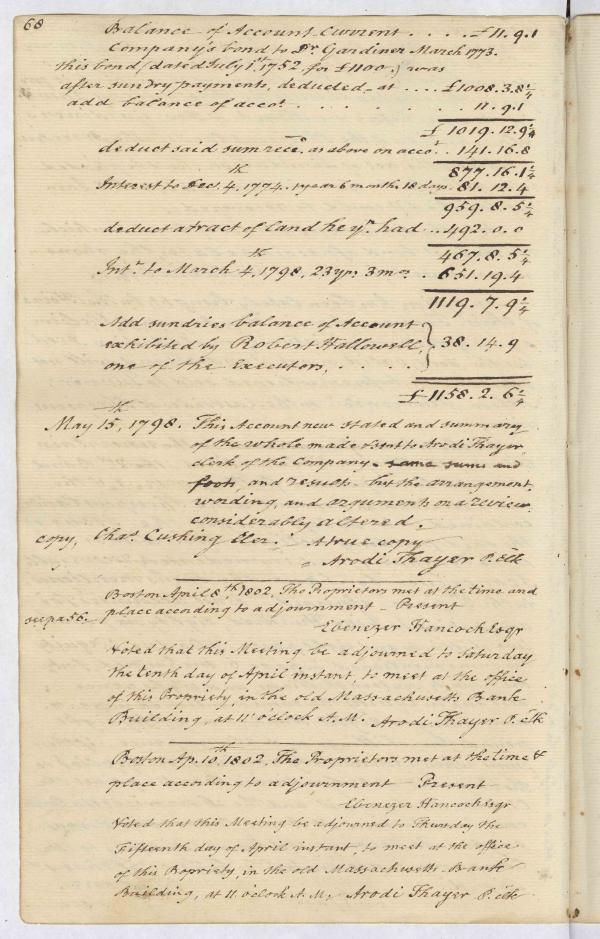 68
Balance of Account Current . . . . £11. 9. 1
Company's bond to Dr. Gardiner March 1773.
this bond (dated July 1st 1752 for £1100.) was
after sundry payments, deducted, at . . . . £1008. 3. 8 1/4
add balance of acco.t . . . . . . . 11. 9. 1
£ 1019. 12. 9 1/4
deduct said sum rece.d as above on acco.t . . 141. 16. 8
877. 16. 1 1/4
Interest to Dec. 4th, 1774. 1 year 6 months. 18 days. 81. 12. 4
959. 8. 5 1/4
deduct a tract of land he yn. had . . 492. 0. 0
467. 8. 5 1/4
Int.t to March 4th, 1798, 23 yrs. 3 mos. . 651. 19. 4
1119. 7. 9 1/4
Add sundries balance of Account
exhibited by Robert Hallowell, } 38. 14. 9
one of the Executors, . . . . .
£ 1158. 2. 6 1/4
May 15th, 1798. This Account new stated and summary
of the whole made & sent to Arodi Thayer
clerk of the Company - same sums and
foots, and results - but the arrangement,
wording, and arguments on a review
considerably altered.
copy, Chas. Cushing Cler. A true copy
- Arodi Thayer P. Clk
Boston April 8th, 1802, The Proprietors met at the time and
place according to adjournment - Present
see pa 56.
Ebenezer Hancock Esqr
Voted that this Meeting be adjourned to Saturday
the tenth day of April instant, to meet at the office
of this Propriety, in the old Massachusetts Bank
Building, at 11 o'clock A. M. Arodi Thayer P. Clk
Boston Ap. 10th, 1802, The Proprietors met at the time &
place according to adjournment Present
Ebenezer Hancock Esqr
Voted that this Meeting be adjourned to Thursday the
Fifteenth day of April instant, to meet at the office
of this Propriety, in the old Massachusetts Bank
Building, at 11 o'clock A. M, Arodi Thayer P. Clk